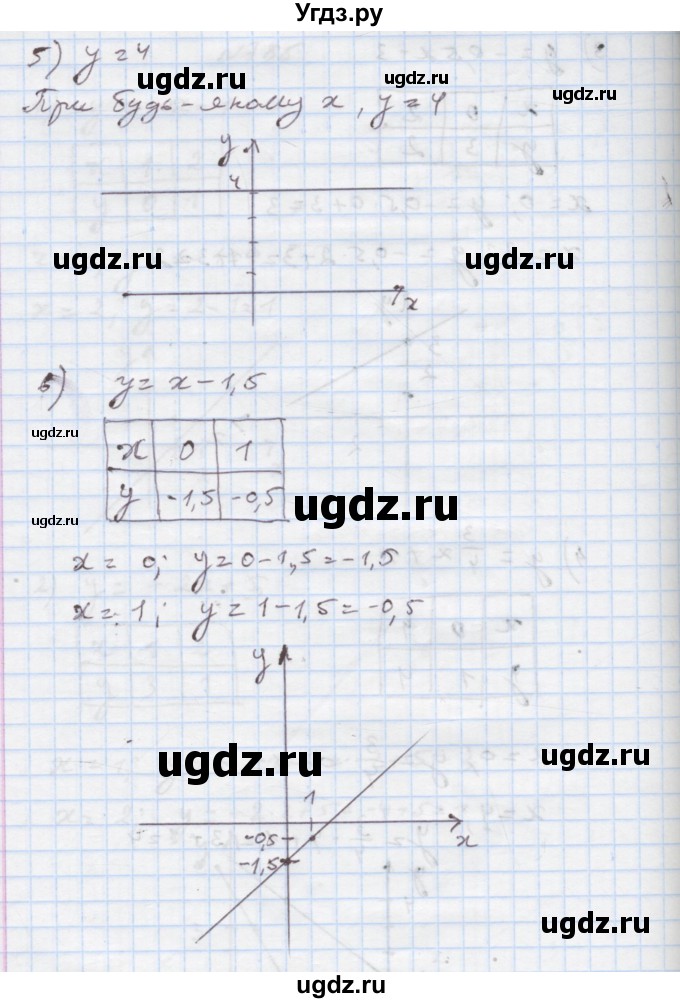 Угдз.ру
5) y = 4
ugdz.ru ugdz.ru
При будь-якому x, y = 4
y
4
ugdz.ru ugdz.ru
x
6) y = x - 1,5
ugdz.ru
x 0 1
y -1,5 -0,5
ugdz.ru
ugdz.ru
x = 0; y = 0 - 1,5 = -1,5
x = 1; y = 1 - 1,5 = -0,5
y
ugdz.ru
ugdz.ru
1
-0,5
x
-1,5
ugdz.ru
ugdz.ru